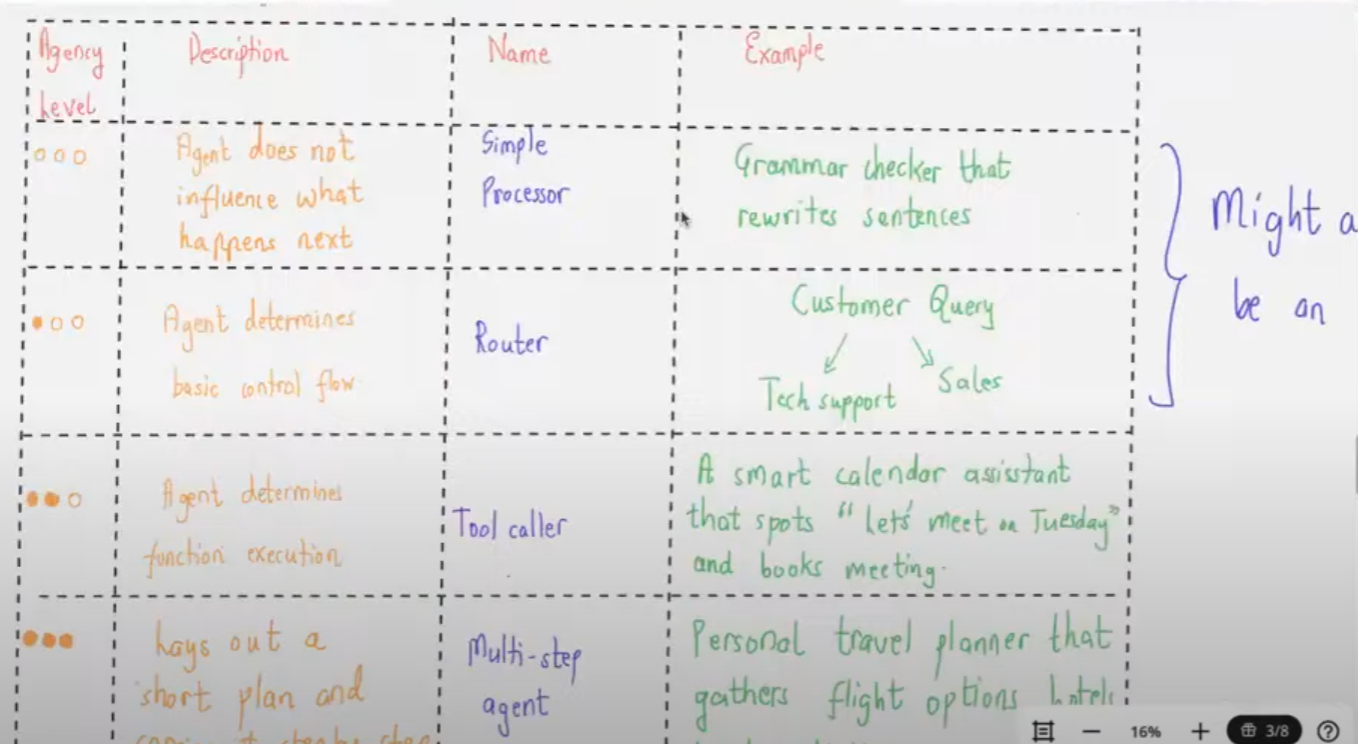 Agency
Level
Description
Name
Example
Agent does not
influence what
happens next
Simple
Processor
Grammar checker that
rewrites sentences
Agent determines
basic control flow
Router
Customer Query
Tech support
Sales
Agent determines
function execution
Tool caller
A smart calendar assistant
that spots "Let's meet on Tuesday"
and books meeting.
Lays out a
short plan and
Multi-step
agent
Personal travel planner that
gathers flight options hotels
Might a
be an
16%
3/8